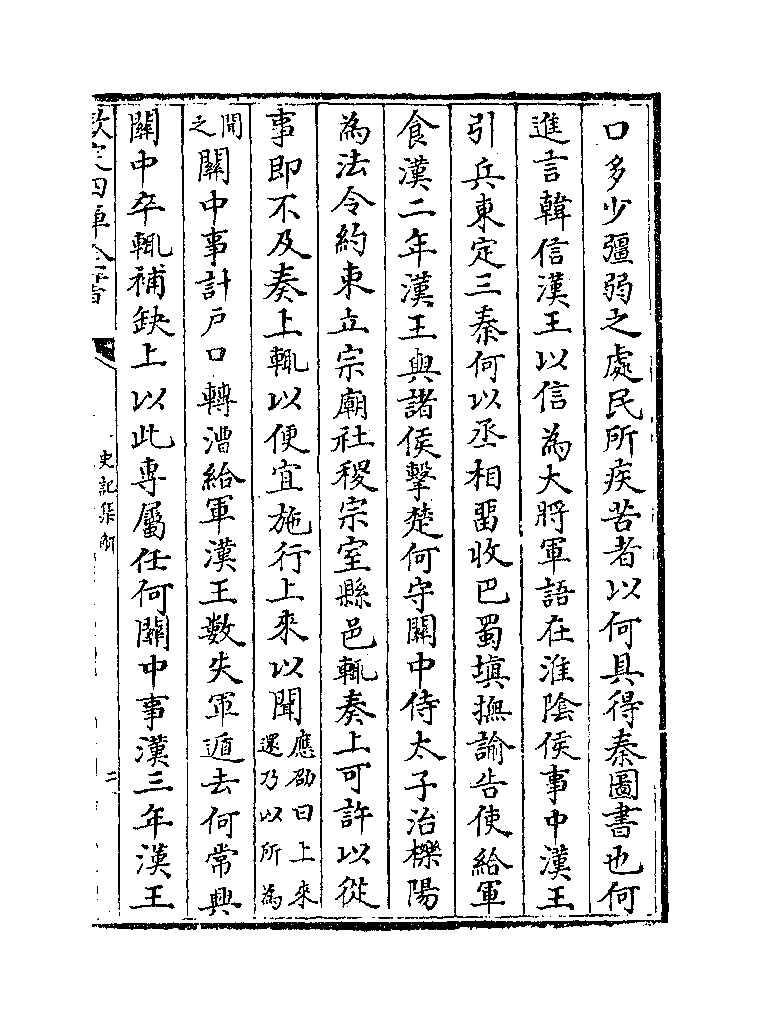 口多少彊弱之處民所疾苦者以何具得秦圖書也何
進言韓信漢王以信為大將軍語在淮陰侯事中漢王
引兵東定三秦何以丞相畱收巴蜀填撫諭告使給軍
食漢二年漢王與諸侯擊楚何守關中侍太子治櫟陽
為法令約束立宗廟社稷宗室縣邑輒奏上可許以從
事即不及奏上輒以便宜施行上來以聞應劭曰上來還乃以所為
聞之關中事計戶口轉漕給軍漢王數失軍遁去何常興
關中卒輒補缺上以此專屬任何關中事漢三年漢王
欽定四庫全書
史記集解
二